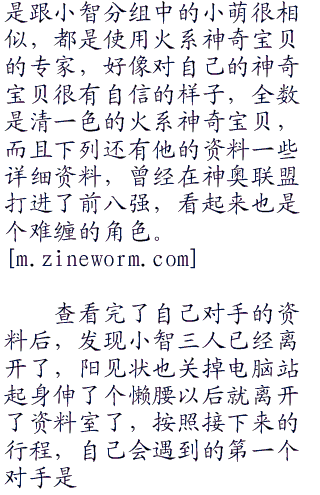 是跟小智分组中的小萌很相
似，都是使用火系神奇宝贝
的专家，好像对自己的神奇
宝贝很有自信的样子，全数
是清一色的火系神奇宝贝，
而且下列还有他的资料一些
详细资料，曾经在神奥联盟
打进了前八强，看起来也是
个难缠的角色。
[m.zineworm.com]
查看完了自己对手的资
料后，发现小智三人已经离
开了，阳见状也关掉电脑站
起身伸了个懒腰以后就离开
了资料室了，按照接下来的
行程，自己会遇到的第一个
对手是